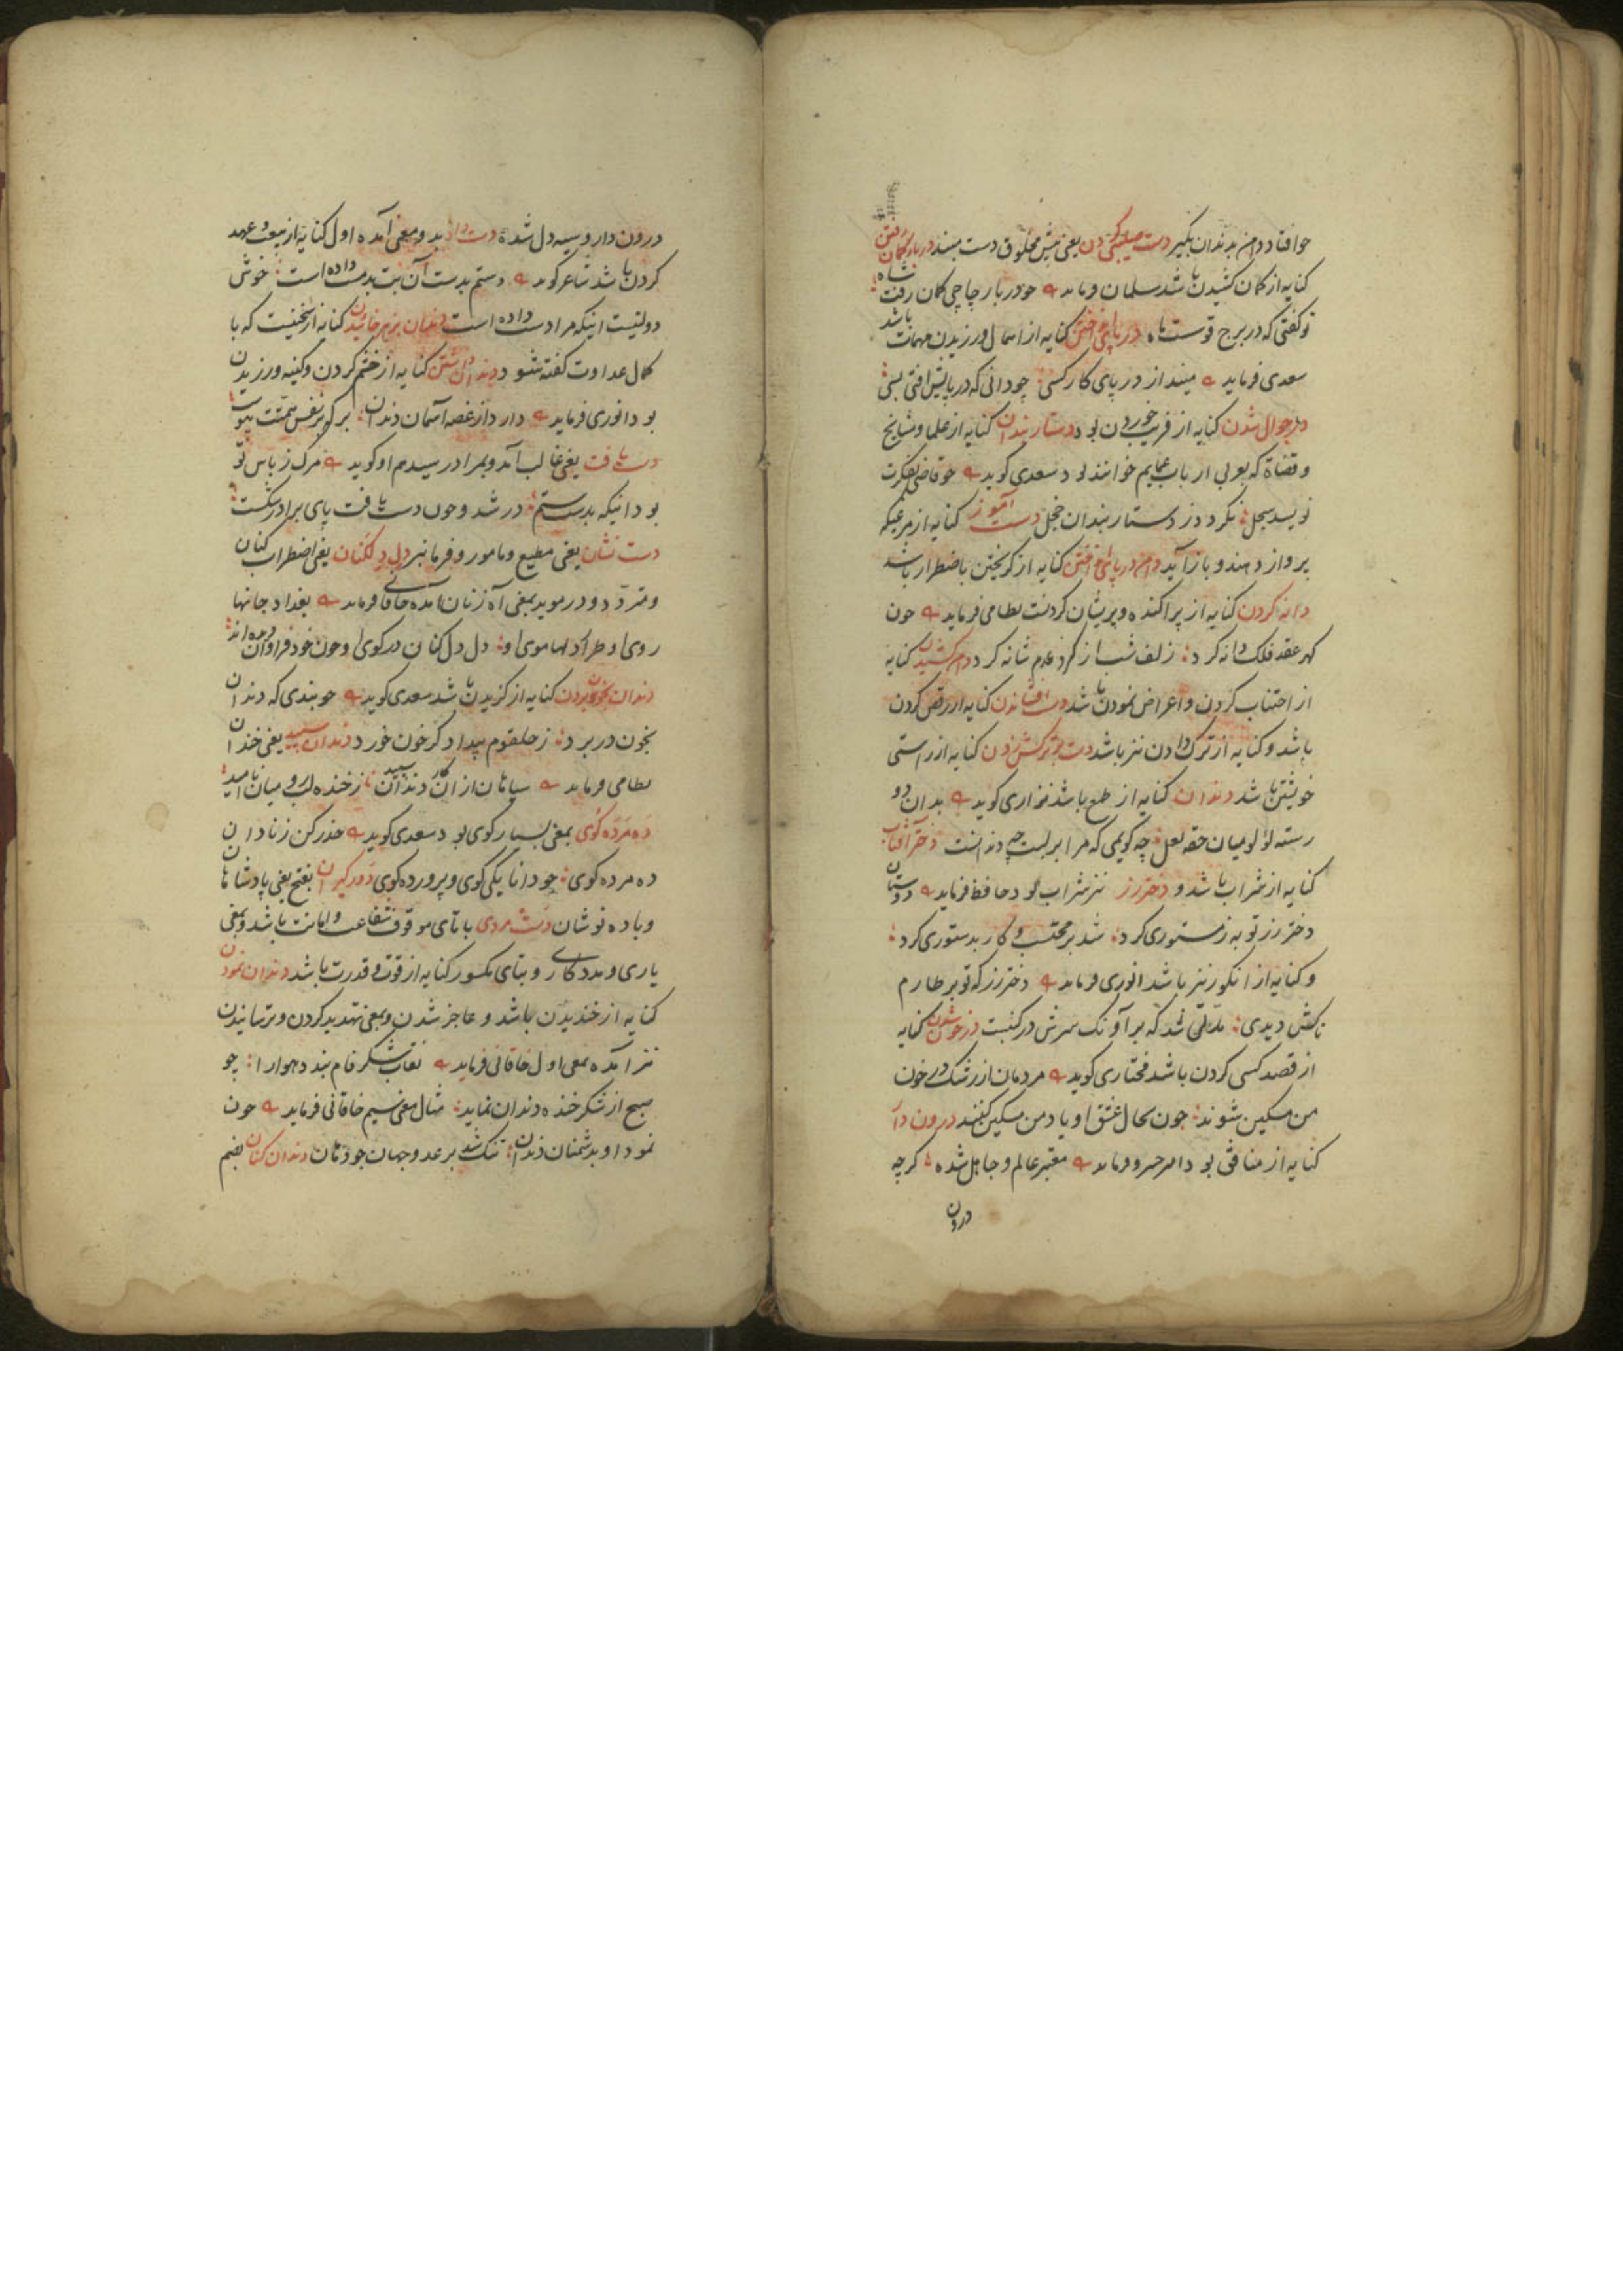 افتاد دامن بدندان بگیر دست یعنی پیش مخلوق دست
کنایه از کمان کشیدن باشد سلمان فرماید چو در بار چاچی کمان رفت شاه
تو گفتی که در برج قوست ماه در پای انداختن کنایه از اهمال ورزیدن مهمات باشد
سعدی فرماید مینداز در پای کار کسی چو دانی که در پایش افتی بسی
در جوال شدن کنایه از فریب خوردن بود دستار بندان کنایه از علما و مشایخ
و قضاة که بعربی ارباب عمایم خوانند بود سعدی گوید چو قاضی بفکرت
نویسد سجل نگردد ز دستار بندان خجل دست آموز کنایه از مرغیکه
پرواز دهند و باز آید دامن در پای کنایه از گریختن باضطرار باشد
دانه کردن کنایه از پراکنده و پریشان کردنست نظامی فرماید چون
عقد فلک دانه کرد زلف شب از گرد عدم شانه کرد دامن کشیدن کنایه
از اجتناب کردن و اعراض نمودن باشد دست افشاندن کنایه از رقص کردن
باشد و کنایه از ترک دادن نیز باشد دست بترکش زدن کنایه از راستی
خویشتن باشد دندان کنایه از طمع باشد نزاری گوید بدان دو
رسته لولو میان حقه لعل چه گویمی که مرا بر لبت چه دندانست دختر آفتاب
کنایه از شراب باشد و دختر رز نیز شراب بود حافظ فرماید دوستان
دختر رز توبه ز مستوری کرد شد بر محتسب و کار بدستوری کرد
و کنایه از انگور نیز باشد انوری فرماید دختر رز که تو بر طارم
تاکش دیدی مدتی شد که بر آونگ سرش در کنبست در خون شدن کنایه
از قصد کسی کردن باشد مختاری گوید مردمان از رشک در خون
من مسکین شوند چون بحال عشق او یاد من مسکین کنند درون دار
کنایه از منافق بود امیر خسرو فرماید معتبر عالم و جاهل شده گرچه
درون
درون دار و سیه دل شده دست داد بدو معنی آمده اول کنایه از بیعت و عهد
کردن باشد شاعر گوید دستم بدست آن بت بدمست داده است خوش
دولتیست اینکه مرا دست داده است دندان بزهر خائیدن کنایه از سخنیست که با
کمال عداوت گفته شود دندان داشتن کنایه از خشم کردن و کینه ورزیدن
بود انوری فرماید دارد از غصه آسمان دندان
دست یافت یعنی غالب آمد و بمراد رسید هم او گوید مرگ ز باس تو
بود اینکه بدست ستم در شد و چون دست یافت پای برادر شکست
دست نشان یعنی مطیع و مامور و فرمانبر دل دل کنان یعنی اضطراب کنان
و متردد و در موید بمعنی آه زنان آمده خاقانی فرماید بغداد جانها
روی او طرار دلها موی او دل دل کنان در کوی او چون خود فراوان دیده اند
دندان بخون بردن کنایه از گزیدن باشد سعدی گوید چو بندی که دندان
بخون در برد ز حلقوم بیداد گر خون خورد دندان سپید یعنی خندان
نظامی فرماید سیاهان از آن کار دندان سپید ز خنده لب رومیان ناامید
ده مرده گوی بمعنی بسیار گوی بود سعدی گوید حذر کن ز نادان
ده مرده گوی چو دانا یکی گوی و پرورده گوی دور گیران بفتح یعنی پادشاهان
و باده نوشان دست مردی با تای موقوف شفاعت و امانت باشد و بمعنی
یاری و مددگاری و بتای مکسور کنایه از قوت و قدرت باشد دندان نمودن
کنایه از خندیدن باشد و عاجز شدن و بمعنی تهدید کردن و ترسانیدن
نیز آمده بمعنی اول خاقانی فرماید نقاب شکر فام بندد هوا را چو
صبح از شکر خنده دندان نماید مثال معنی سیم خاقانی فرماید چون
نمود او بدشمنان دندان تنگ شد بر عدو جهان چو دهان دندان کنان بضم